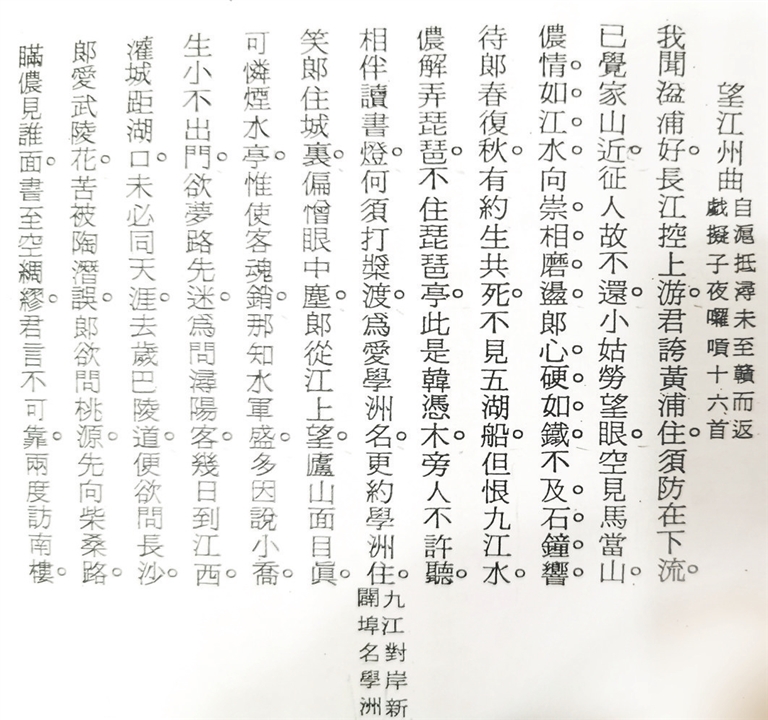 望江州曲
自滬抵潯未至贛而返
戲擬子夜囉嗊十六首
我聞湓浦好。長江控上游。君誇黃浦住。須防在下流。
已覺家山近。征人故不還。小姑勞望眼。空見馬當山。
儂情。如。江。水。向崇。相。磨。盪。郎心。硬。如。鐵。不及。石。鐘。響。
待郎春復秋。有約生共死。不見五湖船。但恨九江水。
儂解弄琵琶。不住琵琶亭。此是韓憑木。旁人不許聽。
相伴讀書燈。何須打槳渡。爲愛學洲名。更約學洲住。
九江對岸新
闢埠名學洲
笑郎住城裏。偏憎眼中塵。郎從江上望。廬山面目眞。
可憐煙水亭。惟使客魂銷。那知水軍盛。多因說小喬。
生小不出門。欲夢路先迷。爲問潯陽客。幾日到江西。
灌城距湖口。未必同天涯。去歲巴陵道。便欲問長沙。
郎愛武陵花。苦被陶潛誤。郎欲問桃源。先向柴桑路。
瞞儂見誰面。書至空綢繆。君言不可靠。兩度訪南樓。